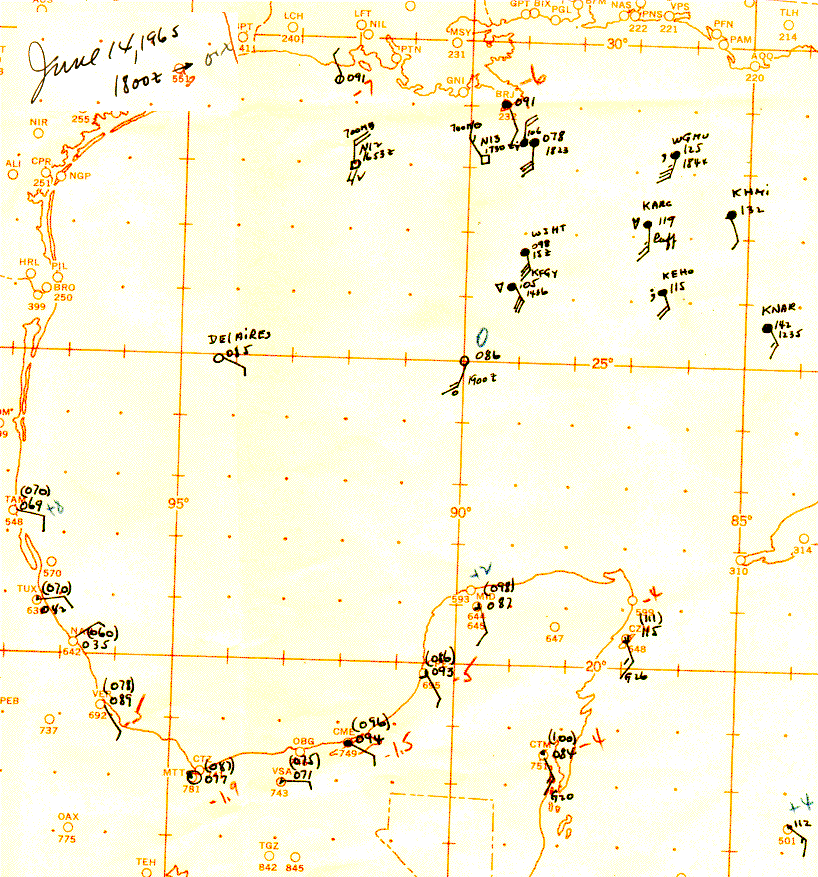 June 14, 1965
1800z
551
IPT
411
LCH
240
LFT
NIL
PTN
MSY
231
GNI
GPT BIX
PGL
BFM
NAS
222
PNS
VPS
221
PFN
PAM
AQQ
220
TLH
214
30°
091
-7
BRJ
232
091
-6
255
NIR
ALI
CPR
251
NGP
700MB
N12
1653z
42
700MB
N13
1730z
106
078
1823
WGMU
125
184x
KARC
119
KHAI
132
WZHT
098
15z
KFGY
105
1436
KEHO
115
KNAR
142
1235
HRL
PIL
BRO
250
399
DELAIRES
085
0
086
1900z
25°
(070)
TAM
069
+8
548
95°
90°
85°
570
TUX
(070)
042
(060)
035
642
593
+2
(098)
MID
087
644
645
647
-4
(111)
115
CZM
648
G26
20°
310
314
(086)
093
695
-.5
PEB
(078)
VER
089
692
-1
737
(096)
CME
094
749
-1.5
OBG
(075)
VSA
071
743
CTZ
(087)
MTT
077
781
-1.9
(100)
CTM
084
751
-4
G20
+4
112
501
OAX
775
TEH
TGZ
842
845